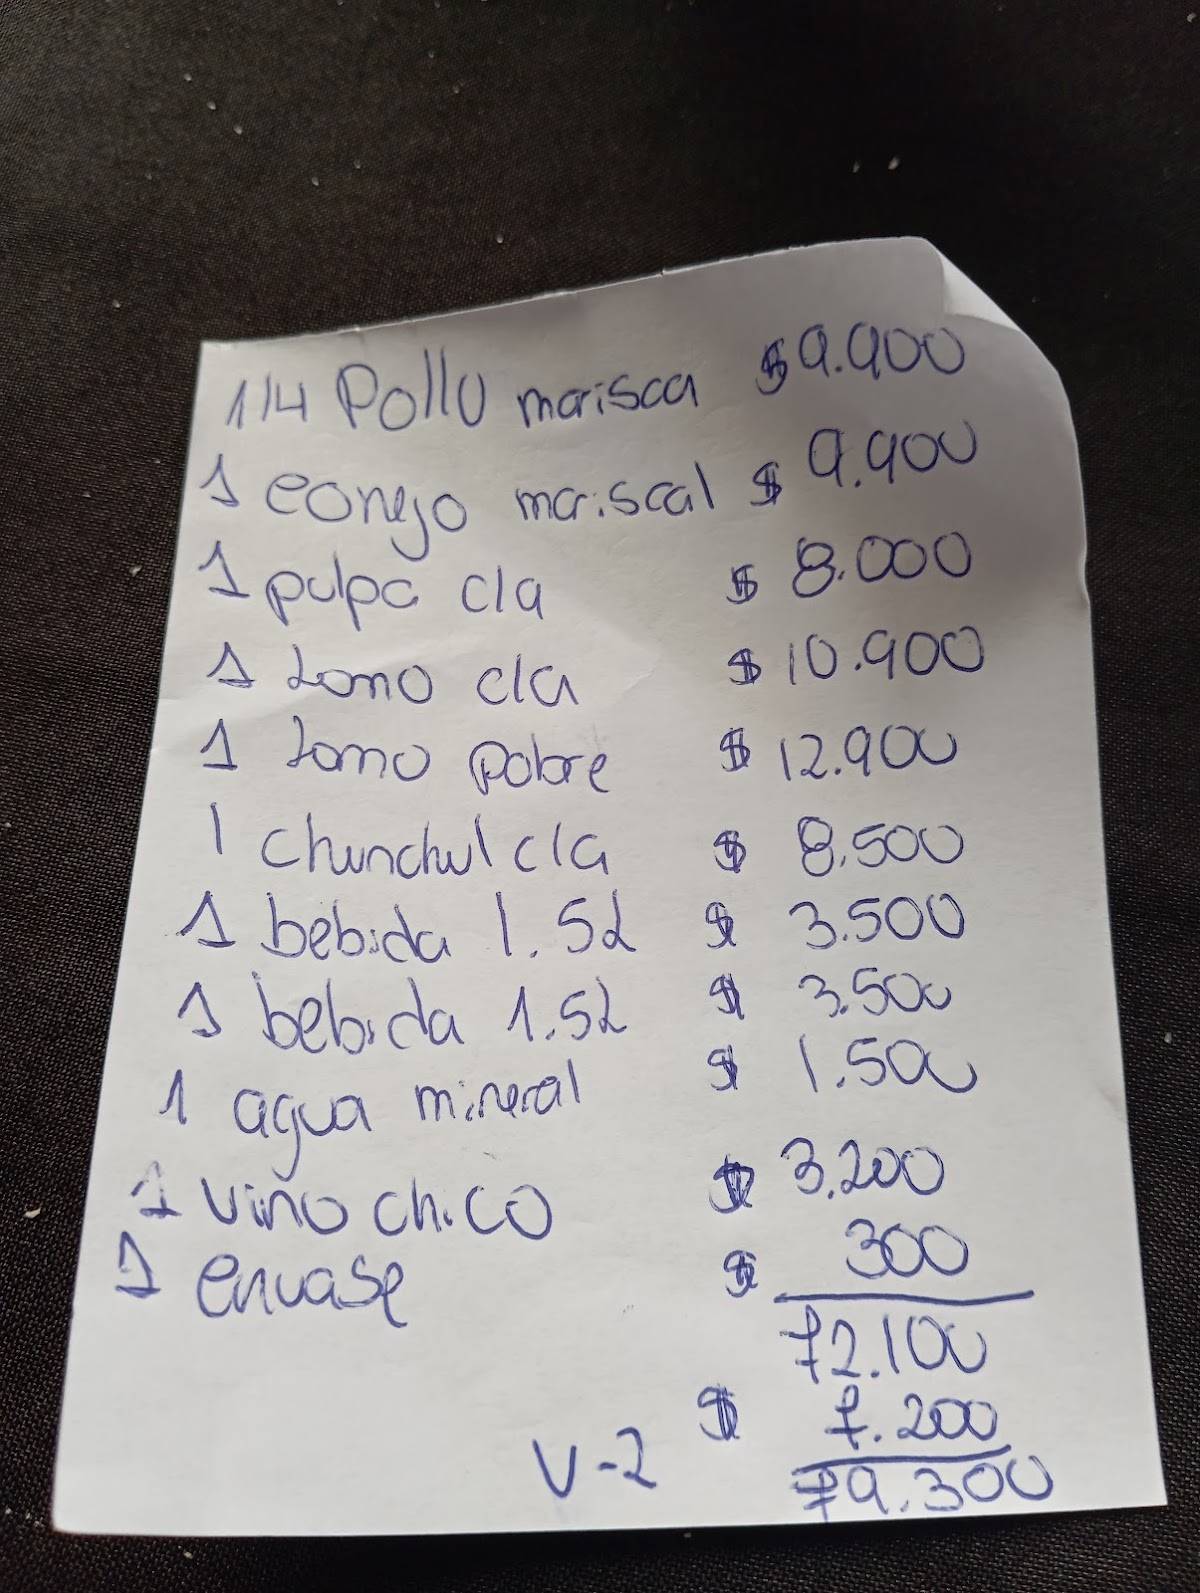 1/4 Pollo marisca $ 9.900
1 conejo mariscal $ 9.900
1 pulpa c/a $ 8.000
1 Lomo c/a $ 10.900
1 Lomo pobre $ 12.900
1 chunchul c/a $ 8.500
1 bebida 1.5L $ 3.500
1 bebida 1.5L $ 3.500
1 agua mineral $ 1.500
1 vino chico $ 3.200
1 envase $ 300
72.100
$ 7.200
V-2 79.300